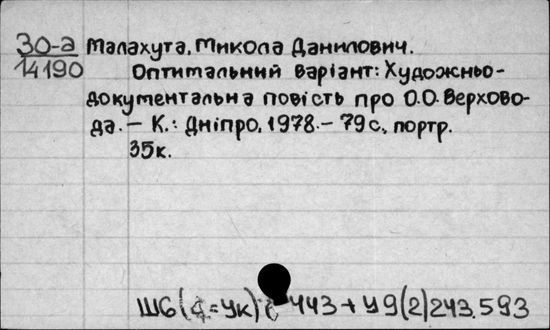 30-а Малахута, Микола Данилович.
14190 Оптимальний варіант: Художньо-
документальна повість про О.О. Верхово-
да. – К.: Дніпро, 1978. – 79 с., портр.
35к.
Ш6(4=Ук) 443 + У9(2)243.593